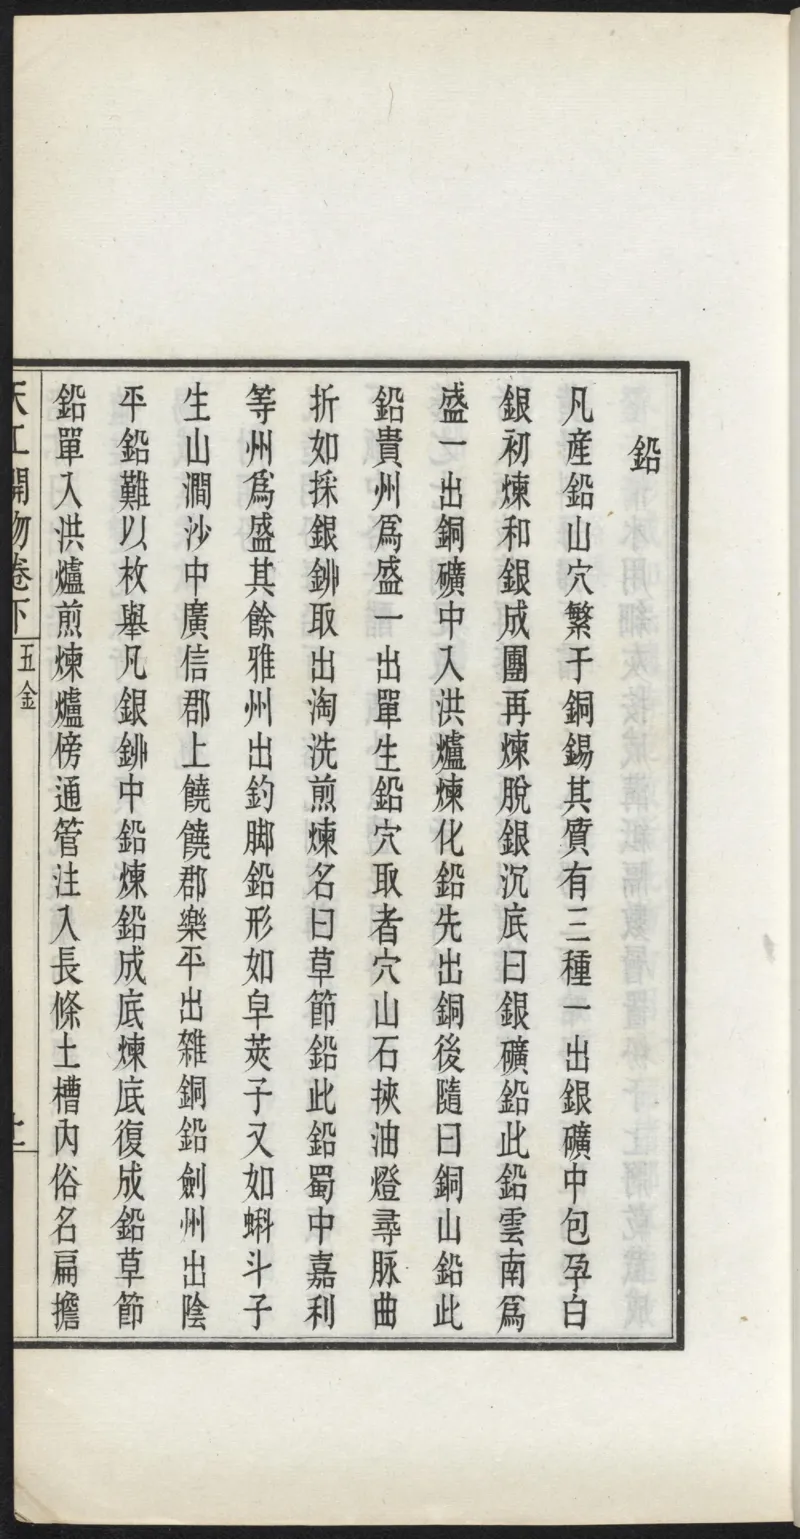 鉛
凡産鉛山穴繁于銅錫其質有三種一出銀礦中包孕白
銀初煉和銀成團再煉脫銀沉底曰銀礦鉛此鉛雲南爲
盛一出銅礦中入洪爐煉化鉛先出銅後隨曰銅山鉛此
鉛貴州爲盛一出單生鉛穴取者穴山石挾油燈尋脉曲
折如採銀鉚取出淘洗煎煉名曰草節鉛此鉛蜀中嘉利
等州爲盛其餘雅州出釣脚鉛形如皁莢子又如蝌斗子
生山澗沙中廣信郡上饒饒郡樂平出雜銅鉛劍州出陰
平鉛難以枚舉凡銀鉚中鉛煉鉛成底煉底復成鉛草節
鉛單入洪爐煎煉爐傍通管注入長條土槽內俗名扁擔
天工開物卷下
五金